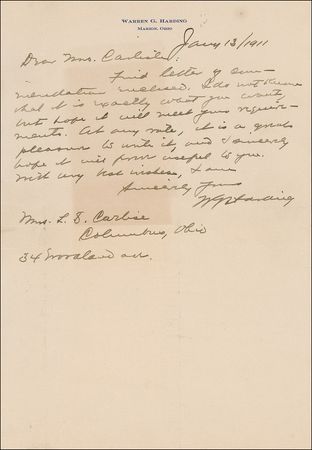 WARREN G. HARDING
MARION, OHIO
Jany 13/1911
Dear Mrs. Carlisle:
Find letter of com-
mendation enclosed. I do not know
that it is exactly what you want,
but hope it will meet your require-
ments. At any rate, it is a great
pleasure to write it, and I sincerely
hope it will prove useful to you.
With very best wishes, I am
Sincerely yours
WGHarding
Mrs. L. B. Carlise
Columbus, Ohio
34 Woodland ave.